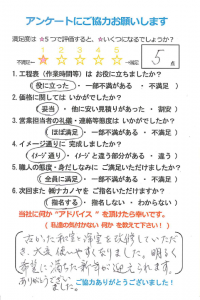 アンケートにご協力お願いします
満足度は☆5つで評価すると、☆いくつになるでしょうか?
1 2 3 4 5
不満足← ☆ ☆ ☆ ☆ ☆ →満足
5 点
1.工程表(作業時間等)は お役に立ちましたか?
(役に立った ・ 一部不満がある ・ 不満足 )
2.価格に関しては いかがでしたか?
(妥当 ・ 他に安い見積りがあった ・ 割安 )
3.営業担当者の礼儀・連絡等態度は いかがでしたか?
(ほぼ満足 ・ 一部不満がある ・ 不満足 )
4.イメージ通りに 完成しましたか?
(イメージ通り ・ イメージと違う部分がある ・ 違う )
5.職人の態度・身だしなみに ご満足いただけましたか?
(全員に満足 ・ 一部不満がある ・ 不満足 )
6.次回また ㈱ナカノヤを ご指名いただけますか?
(指名する ・ 指名しない ・ わからない )
当社に何か“アドバイス”を頂けたら幸いです。
( 私達の気付かない 何か を教えて下さい!)
古かった和室と浴室を改修していただ
き、大変使いやすくなりました。明るく
希望に満ちた新年が迎えられます。
ありがとうござい
ました。
ご協力ありがとうございました!